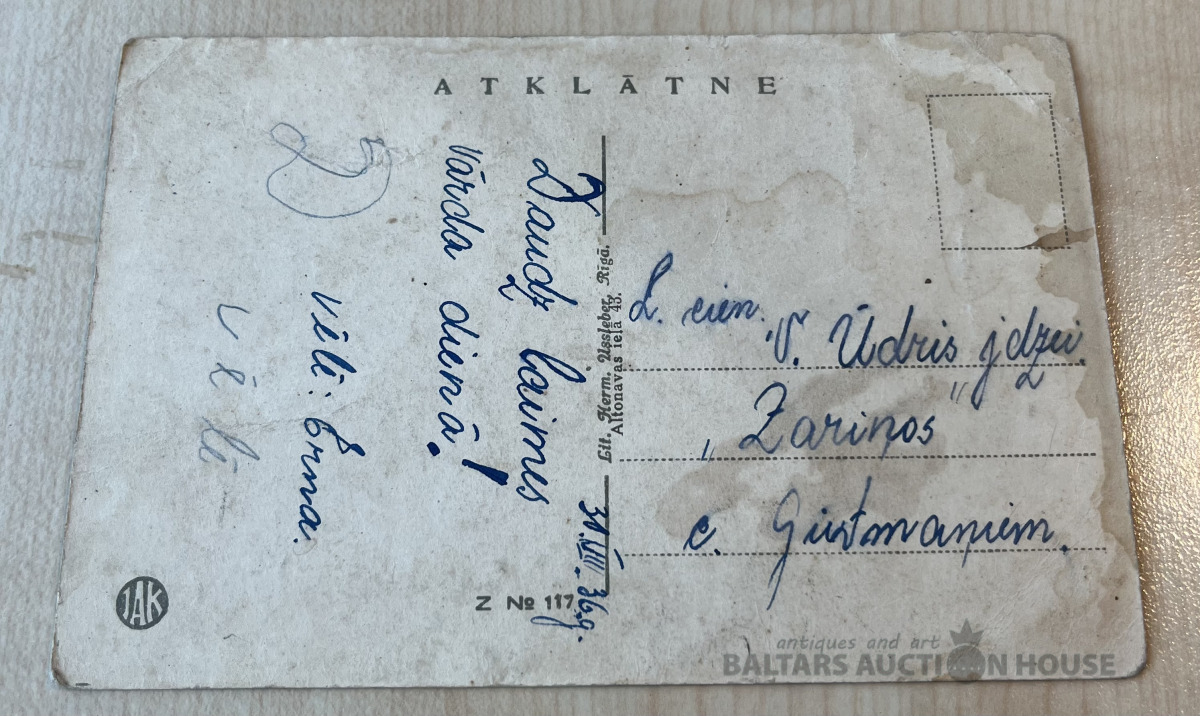 ATKLĀTNE
Daudz laimes
vārda dienā!
vēli: Erna.
vēli
31.VIII.36.g.
Lit. Herm. Ussleber, Rīgā.
Altonavas ielā 43.
L. cien. V. Ūdris jdzei.
„Zariņos"
c. Gustmaņiem.
JAK
Z № 117
antiques and art
BALTARS AUCTION HOUSE